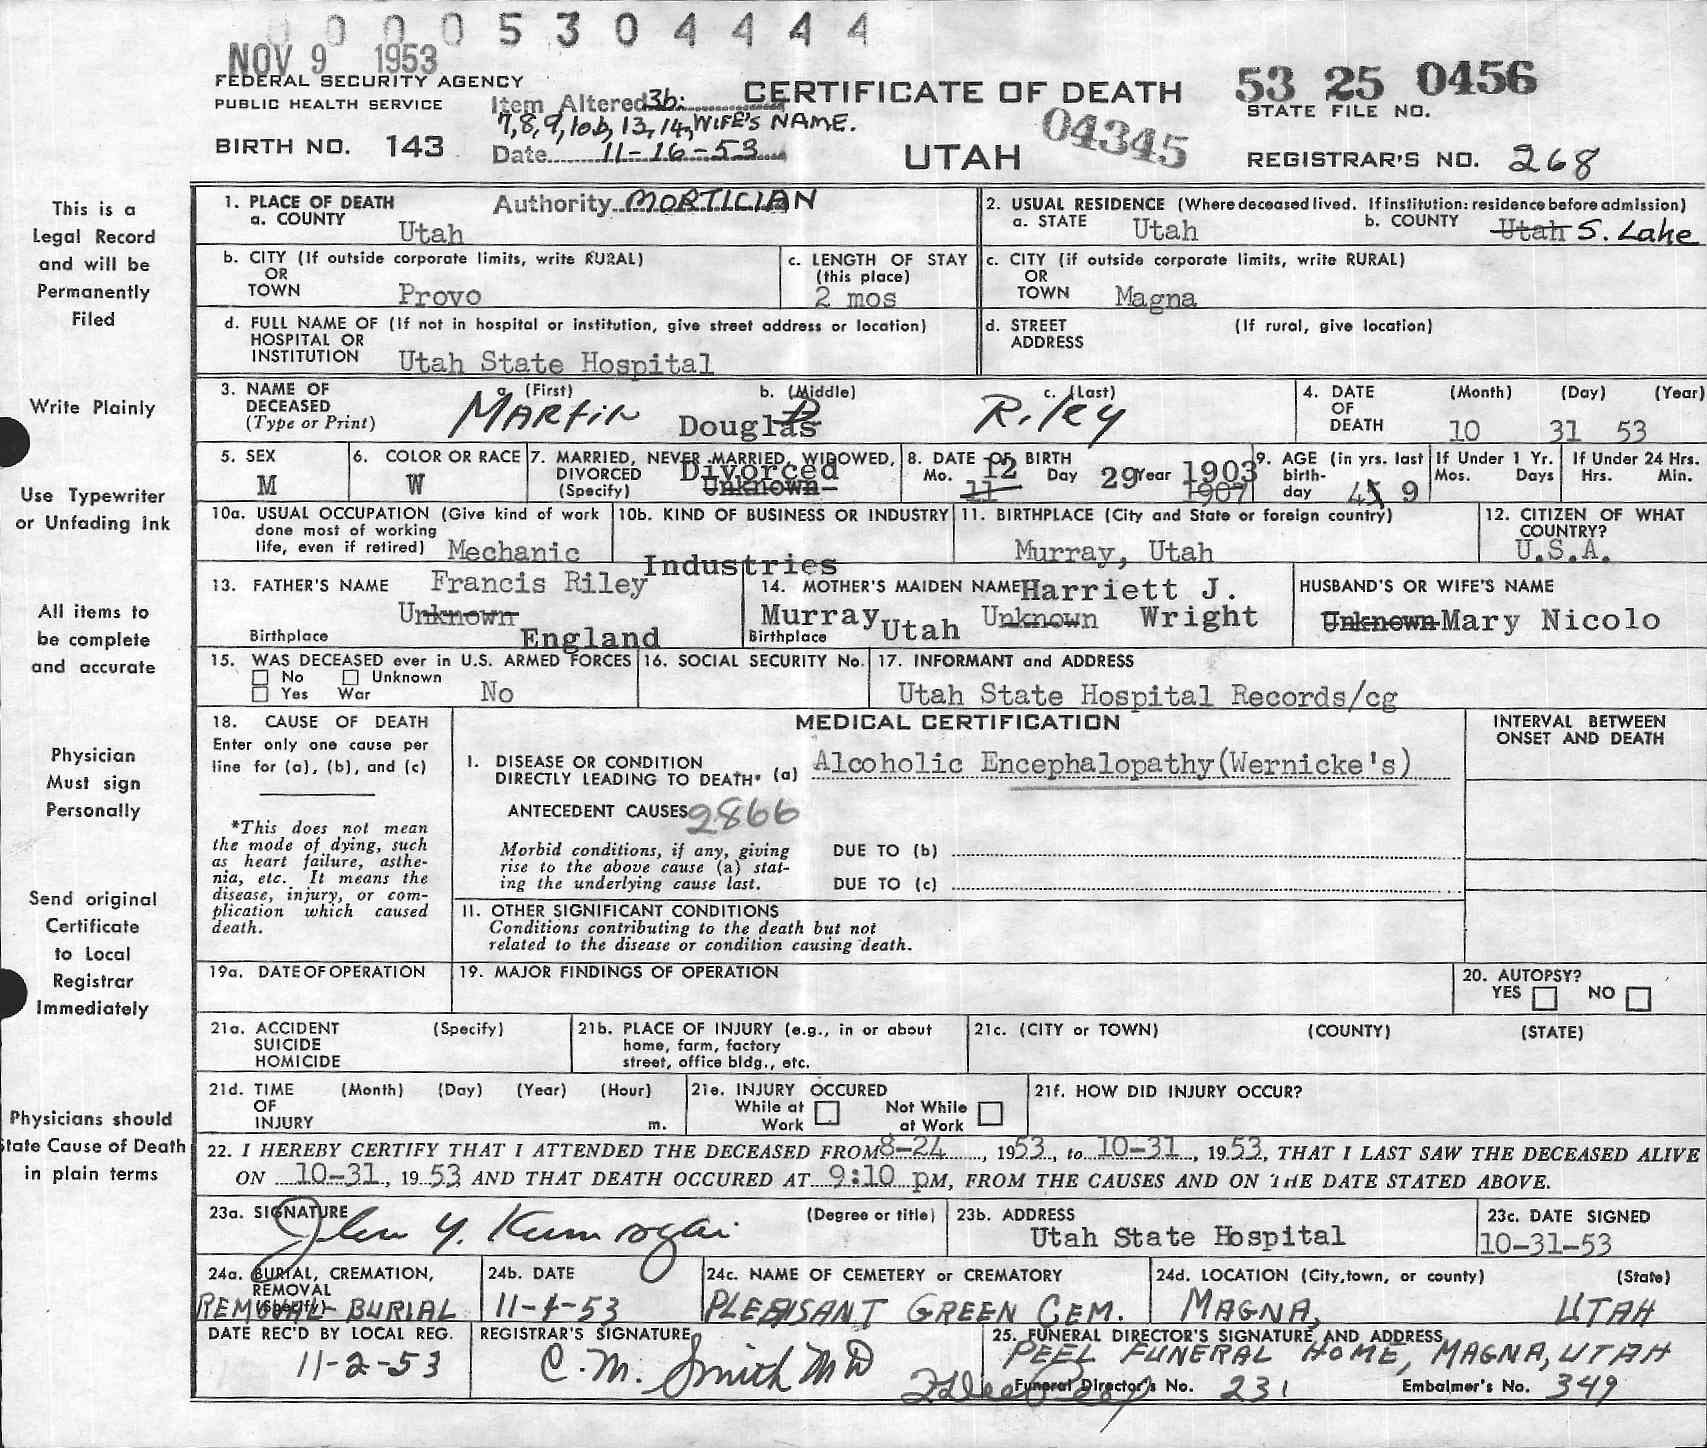 0 0 0 5 3 0 4 4 4 4
NOV 9 1953
FEDERAL SECURITY AGENCY
PUBLIC HEALTH SERVICE
BIRTH NO. 143
Item Altered 3b:
7,8,9,10b,13,14,WIFE'S NAME.
Date 11-16-53
Authority MORTICIAN
CERTIFICATE OF DEATH
UTAH
04345
53 25 0456
STATE FILE NO.
REGISTRAR'S NO. 268
This is a
Legal Record
and will be
Permanently
Filed
Write Plainly
Use Typewriter
or Unfading Ink
All items to
be complete
and accurate
Physician
Must sign
Personally
Send original
Certificate
to Local
Registrar
Immediately
Physicians should
State Cause of Death
in plain terms
1. PLACE OF DEATH
a. COUNTY Utah
2. USUAL RESIDENCE (Where deceased lived. If institution: residence before admission)
a. STATE Utah b. COUNTY Utah S. Lake
b. CITY (If outside corporate limits, write RURAL)
OR
TOWN Provo
c. LENGTH OF STAY
(this place)
2 mos
c. CITY (if outside corporate limits, write RURAL)
OR
TOWN Magna
d. FULL NAME OF (If not in hospital or institution, give street address or location)
HOSPITAL OR
INSTITUTION Utah State Hospital
d. STREET (If rural, give location)
ADDRESS
3. NAME OF
DECEASED
(Type or Print)
a. (First) b. (Middle) c. (Last)
Martin Douglas D Riley
4. DATE (Month) (Day) (Year)
OF
DEATH 10 31 53
5. SEX
M
6. COLOR OR RACE
W
7. MARRIED, NEVER MARRIED, WIDOWED,
DIVORCED Divorced
(Specify) Unknown
8. DATE OF BIRTH
Mo. 12 Day 29 Year 1903
11 1907
9. AGE (in yrs. last
birth-
day 45 9
If Under 1 Yr.
Mos. Days
If Under 24 Hrs.
Hrs. Min.
10a. USUAL OCCUPATION (Give kind of work
done most of working
life, even if retired) Mechanic
10b. KIND OF BUSINESS OR INDUSTRY
Industries
11. BIRTHPLACE (City and State or foreign country)
Murray, Utah
12. CITIZEN OF WHAT
COUNTRY?
U.S.A.
13. FATHER'S NAME Francis Riley
Unknown
Birthplace England
14. MOTHER'S MAIDEN NAME Harriett J.
Murray Utah Unknown Wright
Birthplace
HUSBAND'S OR WIFE'S NAME
Unknown Mary Nicolo
15. WAS DECEASED ever in U.S. ARMED FORCES
No Unknown
Yes War No
16. SOCIAL SECURITY No.
17. INFORMANT and ADDRESS
Utah State Hospital Records/cg
18. CAUSE OF DEATH
Enter only one cause per
line for (a), (b), and (c)
*This does not mean
the mode of dying, such
as heart failure, asthe-
nia, etc. It means the
disease, injury, or com-
plication which caused
death.
MEDICAL CERTIFICATION
I. DISEASE OR CONDITION
DIRECTLY LEADING TO DEATH* (a) Alcoholic Encephalopathy(Wernicke's)
ANTECEDENT CAUSES 2866
Morbid conditions, if any, giving
rise to the above cause (a) stat-
ing the underlying cause last.
DUE TO (b)
DUE TO (c)
II. OTHER SIGNIFICANT CONDITIONS
Conditions contributing to the death but not
related to the disease or condition causing death.
INTERVAL BETWEEN
ONSET AND DEATH
19a. DATE OF OPERATION
19. MAJOR FINDINGS OF OPERATION
20. AUTOPSY?
YES NO
21a. ACCIDENT (Specify)
SUICIDE
HOMICIDE
21b. PLACE OF INJURY (e.g., in or about
home, farm, factory
street, office bldg., etc.
21c. (CITY or TOWN) (COUNTY) (STATE)
21d. TIME (Month) (Day) (Year) (Hour)
OF
INJURY m.
21e. INJURY OCCURED
While at Work
Not While at Work
21f. HOW DID INJURY OCCUR?
22. I HEREBY CERTIFY THAT I ATTENDED THE DECEASED FROM 8-24, 1953, to 10-31, 1953, THAT I LAST SAW THE DECEASED ALIVE
ON 10-31, 1953 AND THAT DEATH OCCURED AT 9:10 pM, FROM THE CAUSES AND ON THE DATE STATED ABOVE.
23a. SIGNATURE (Degree or title)
23b. ADDRESS
Utah State Hospital
23c. DATE SIGNED
10-31-53
24a. BURIAL, CREMATION,
REMOVAL
(Specify)
REMOVAL-BURIAL
24b. DATE
11-4-53
24c. NAME OF CEMETERY or CREMATORY
PLEASANT GREEN CEM.
24d. LOCATION (City, town, or county) (State)
MAGNA, UTAH
DATE REC'D BY LOCAL REG.
11-2-53
REGISTRAR'S SIGNATURE
C. M. Smith MD
25. FUNERAL DIRECTOR'S SIGNATURE AND ADDRESS
PEEL FUNERAL HOME, MAGNA, UTAH
Funeral Director's No. 231 Embalmer's No. 349